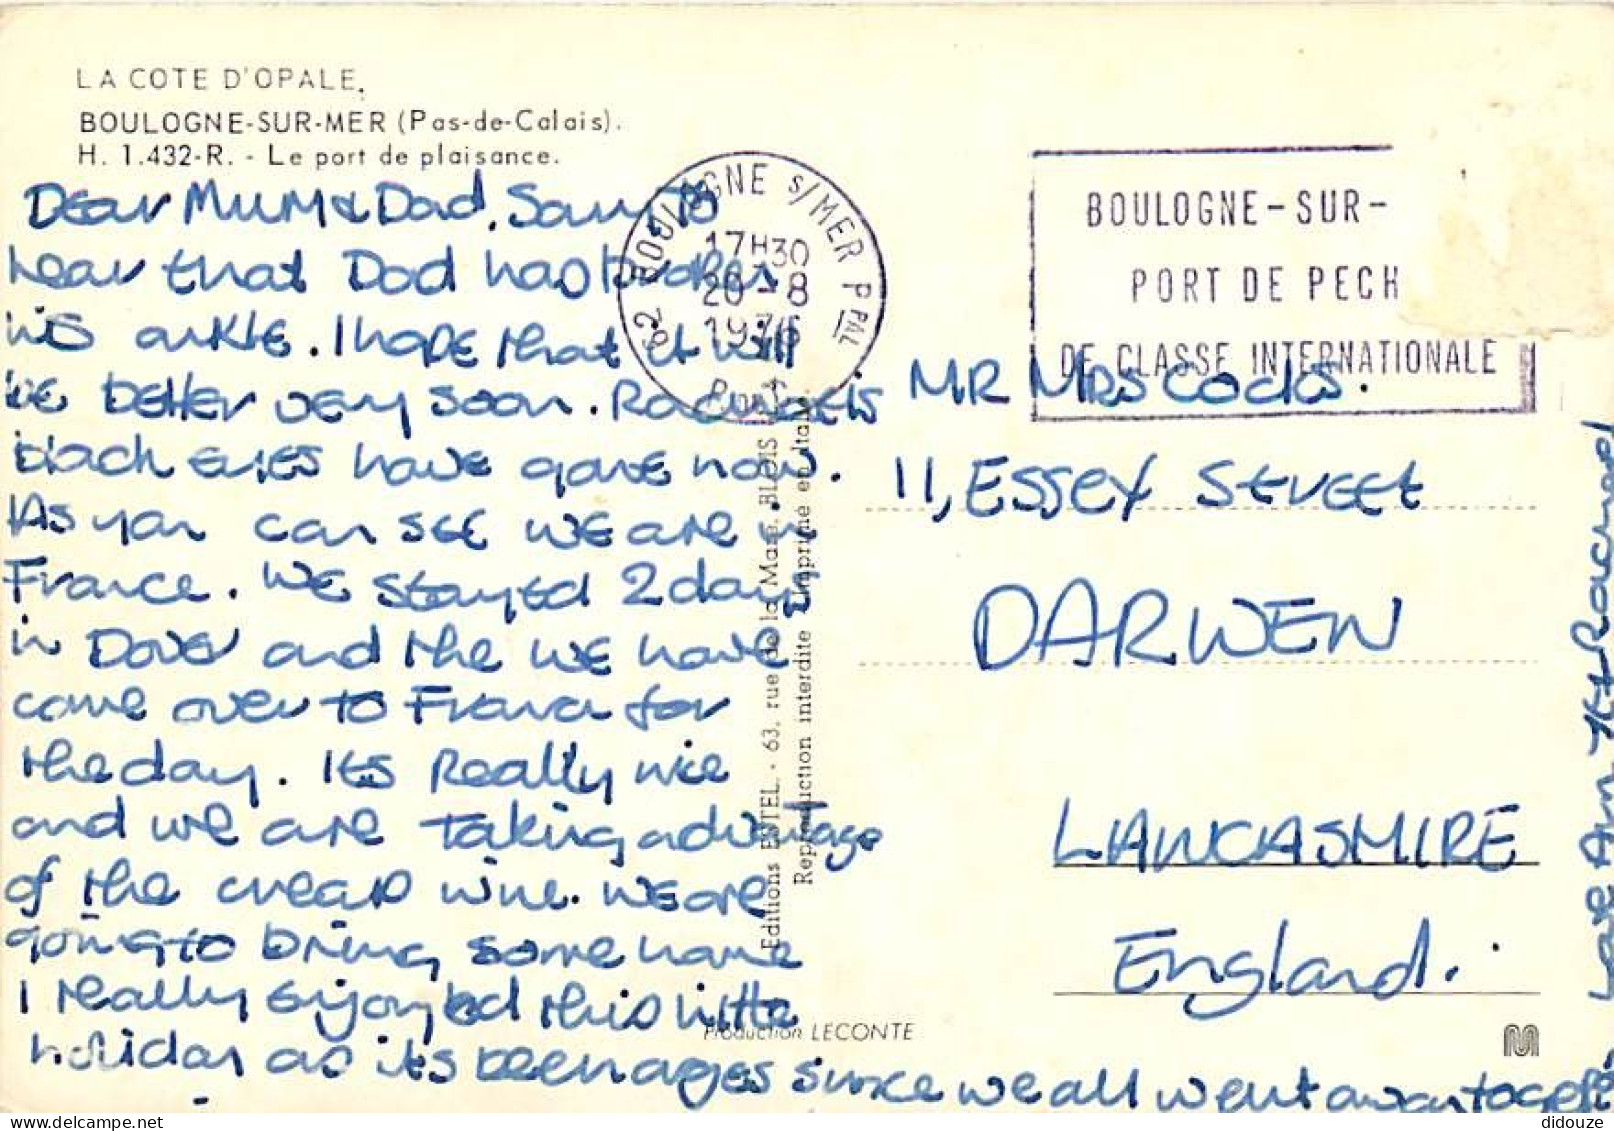 LA COTE D'OPALE,
BOULOGNE-SUR-MER (Pas-de-Calais).
H. 1.432-R. - Le port de plaisance.
Dear Mum & Dad, Sorry to
hear that Dad has broken
his ankle. I hope that it will
be better very soon. Rachaels
black eyes have gone now.
As you can see we are in
France. We stayed 2 days
in Dover and the we have
come over to France for
the day. Its really nice
and we are taking advantage
of the cheap wine. We are
going to bring some home
I really enjoyed this little
holiday as its been ages since we all went away together
Love Ann Rachael
62 BOULOGNE S/MER PPAL
17H30
20-8
1976
BOULOGNE-SUR-
PORT DE PECH
DE CLASSE INTERNATIONALE
MR MRS COCKS.
11, ESSEX STREET
DARWEN
LANCASHIRE
England.
Editions ESTEL. - 63, rue de la Mare, BLOIS
Reproduction interdite Imprimé en Italie.
Production LECONTE
delcampe.net
didouze